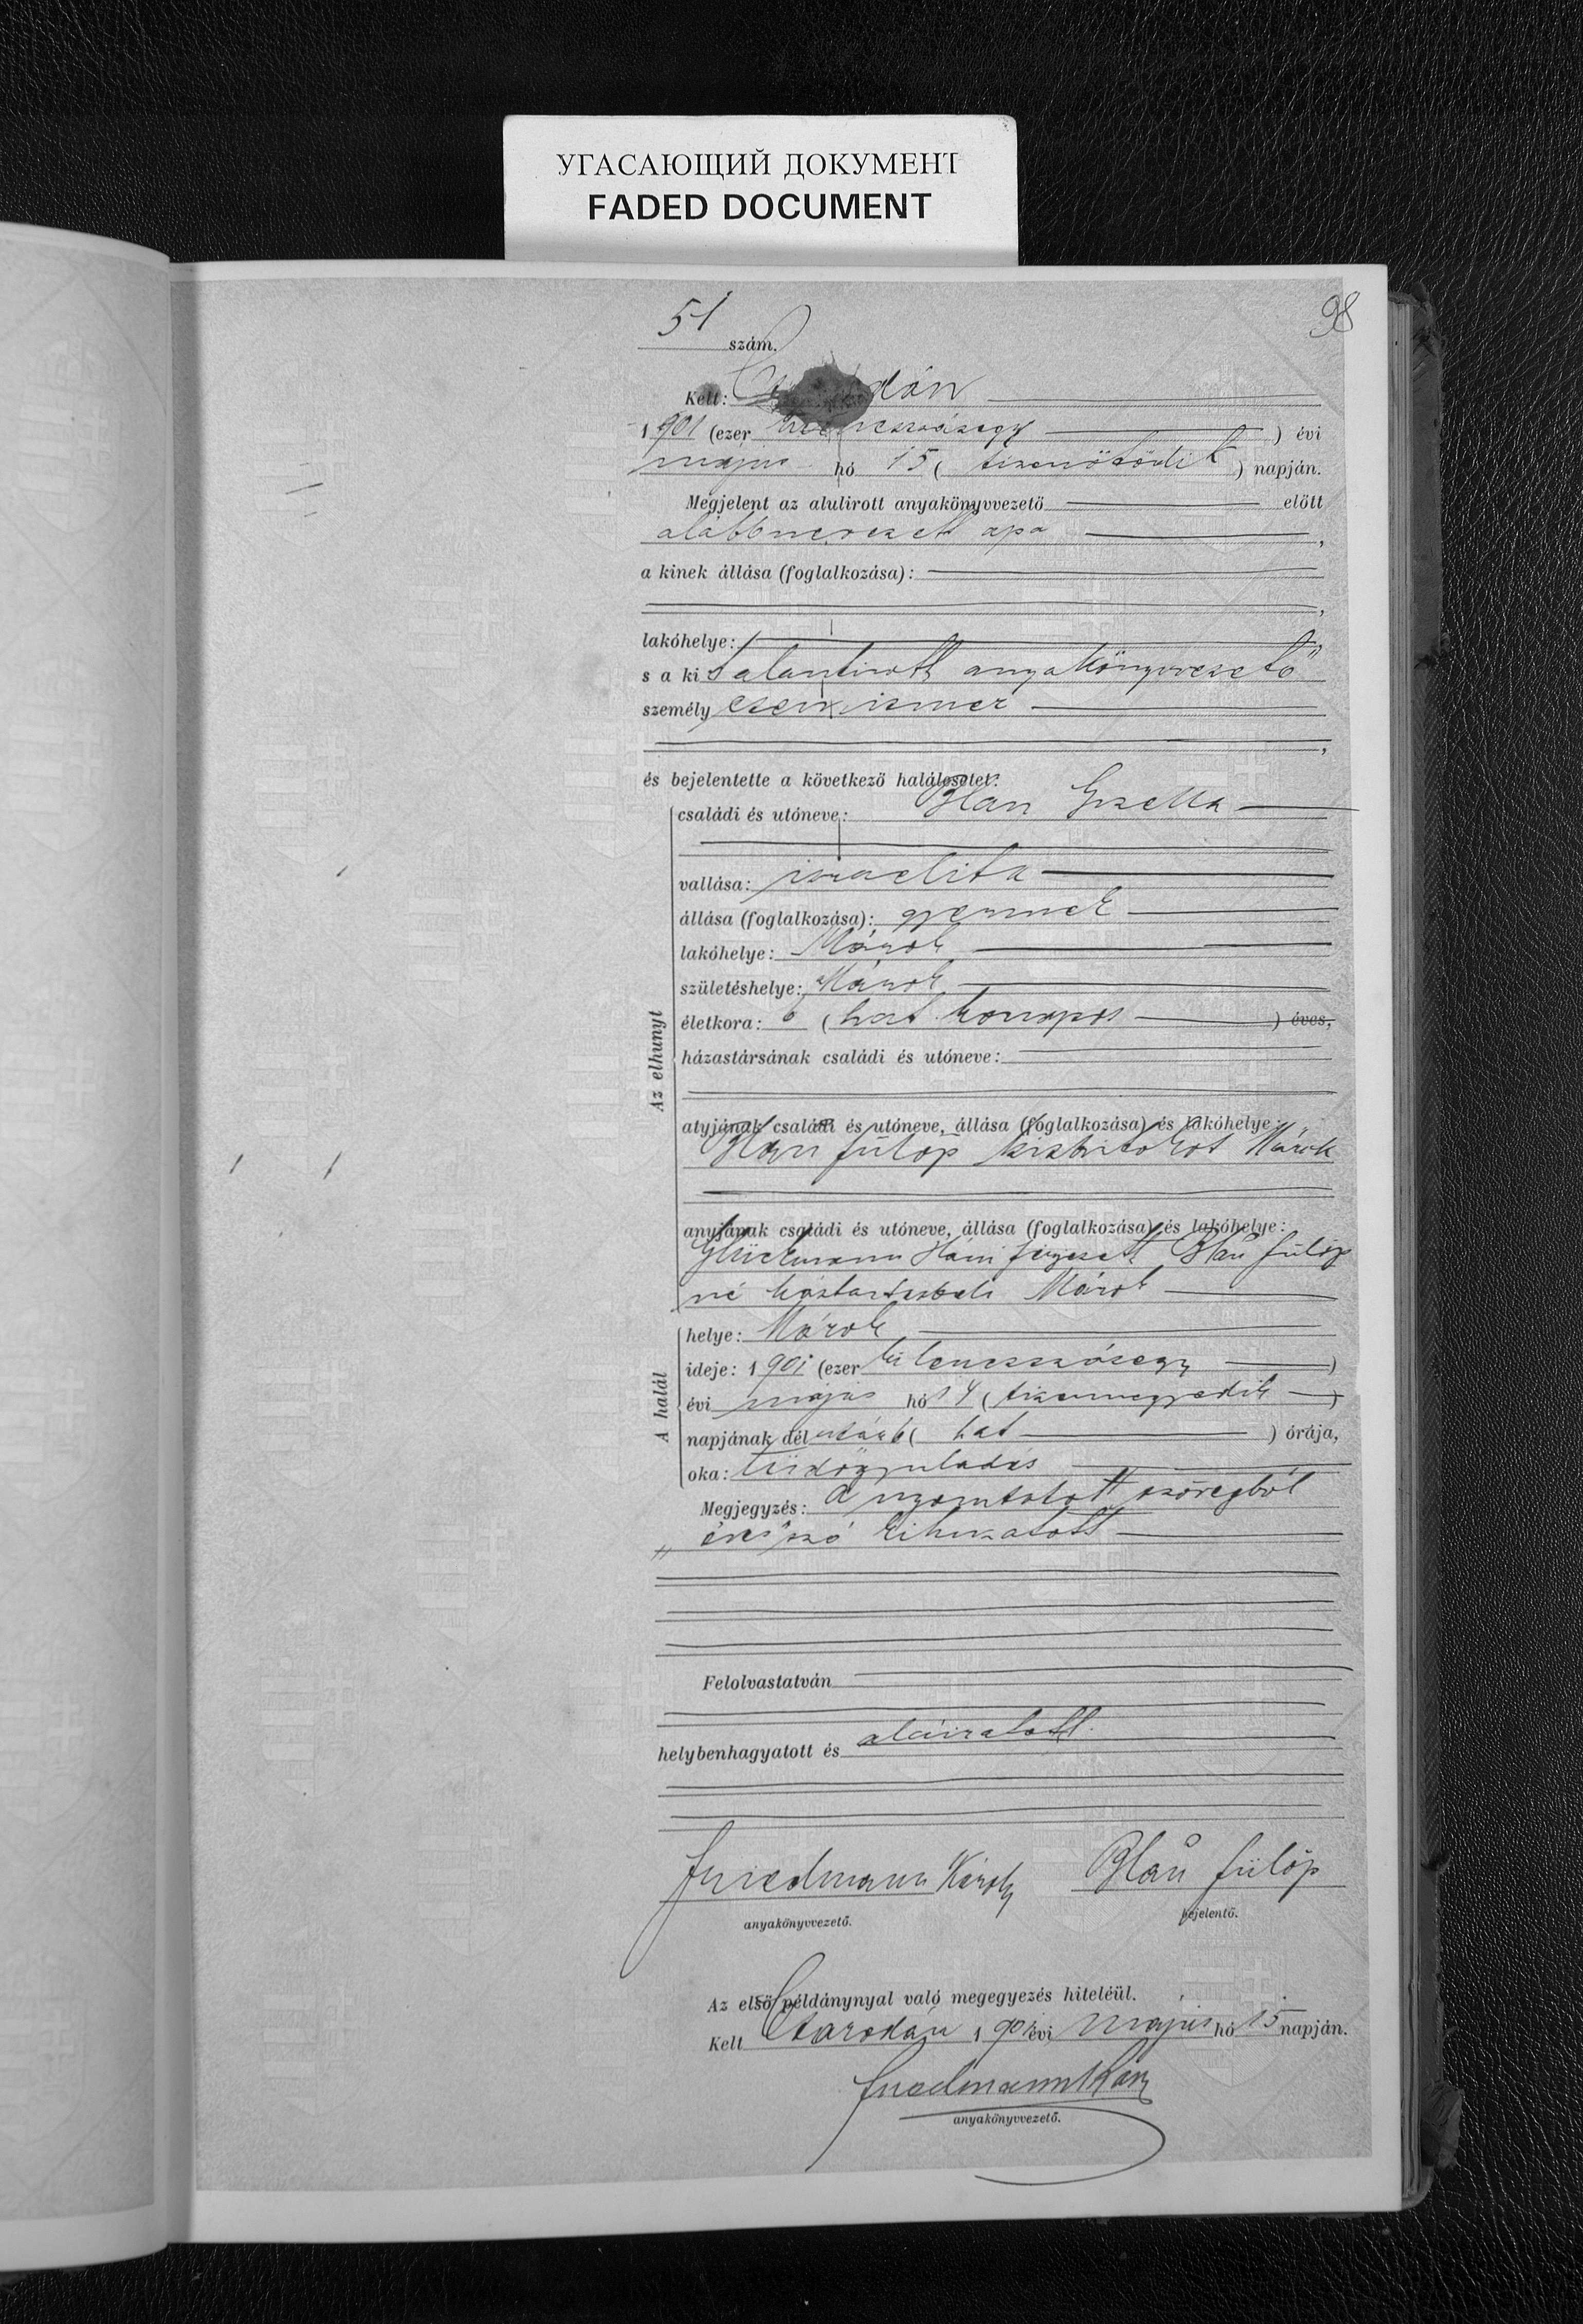 УГАСАЮЩИЙ ДОКУМЕНТ
FADED DOCUMENT
98
51 szám.
Kelt:
1901 (ezer kilencszázegy ) évi
május hó 15 ( tizenötödik ) napján.
Megjelent az alulirott anyakönyvvezető előtt
alább nevezett apa ,
a kinek állása (foglalkozása):
,
lakóhelye:
s a kit alantirott anyakönyvvezető
személyesen ismer
,
és bejelentette a következő halálesetet:
Az elhunyt
családi és utóneve: Blau Gizella
vallása: izraelita
állása (foglalkozása): gyermek
lakóhelye: Márok
születéshelye: Márok
életkora: 6 ( hat hónapos ) éves,
házastársának családi és utóneve:
atyjának családi és utóneve, állása (foglalkozása) és lakóhelye:
Blau Fülöp kisbirtokos Márok
anyjának családi és utóneve, állása (foglalkozása) és lakóhelye:
Glückmann Háni férjezett Blau Fülöp
né háztartásbeli Márok
A halál
helye: Márok
ideje: 1901 (ezer kilencszázegy )
évi május hó 14 ( tizennegyedik )
napjának délután 6 ( hat ) órája,
oka: tüdőgyuladás
Megjegyzés: A nyomtatott szövegből
„éves" szó kihuzatott
Felolvastatván
helybenhagyatott és aláiratott.
Friedmann Károly Blau Fülöp
anyakönyvvezető. bejelentő.
Az első példánynyal való megegyezés hiteléül.
Kelt Csarodán 1901 évi május hó 15 napján.
Friedmann Károly
anyakönyvvezető.